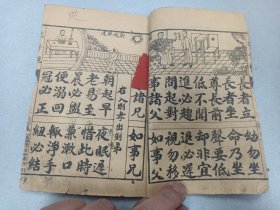 長者立 幼勿坐
長者坐 命乃坐
尊長前 聲要低
低不聞 却非宜
進必趨 退必遲
問起對 視勿移
事諸父 如事父
諸兄 如事兄
右入則孝出則弟
朝起早 夜眠遲
老易至 惜此時
晨必盥 兼漱口
便溺回 輒淨手
冠必正 紐必結